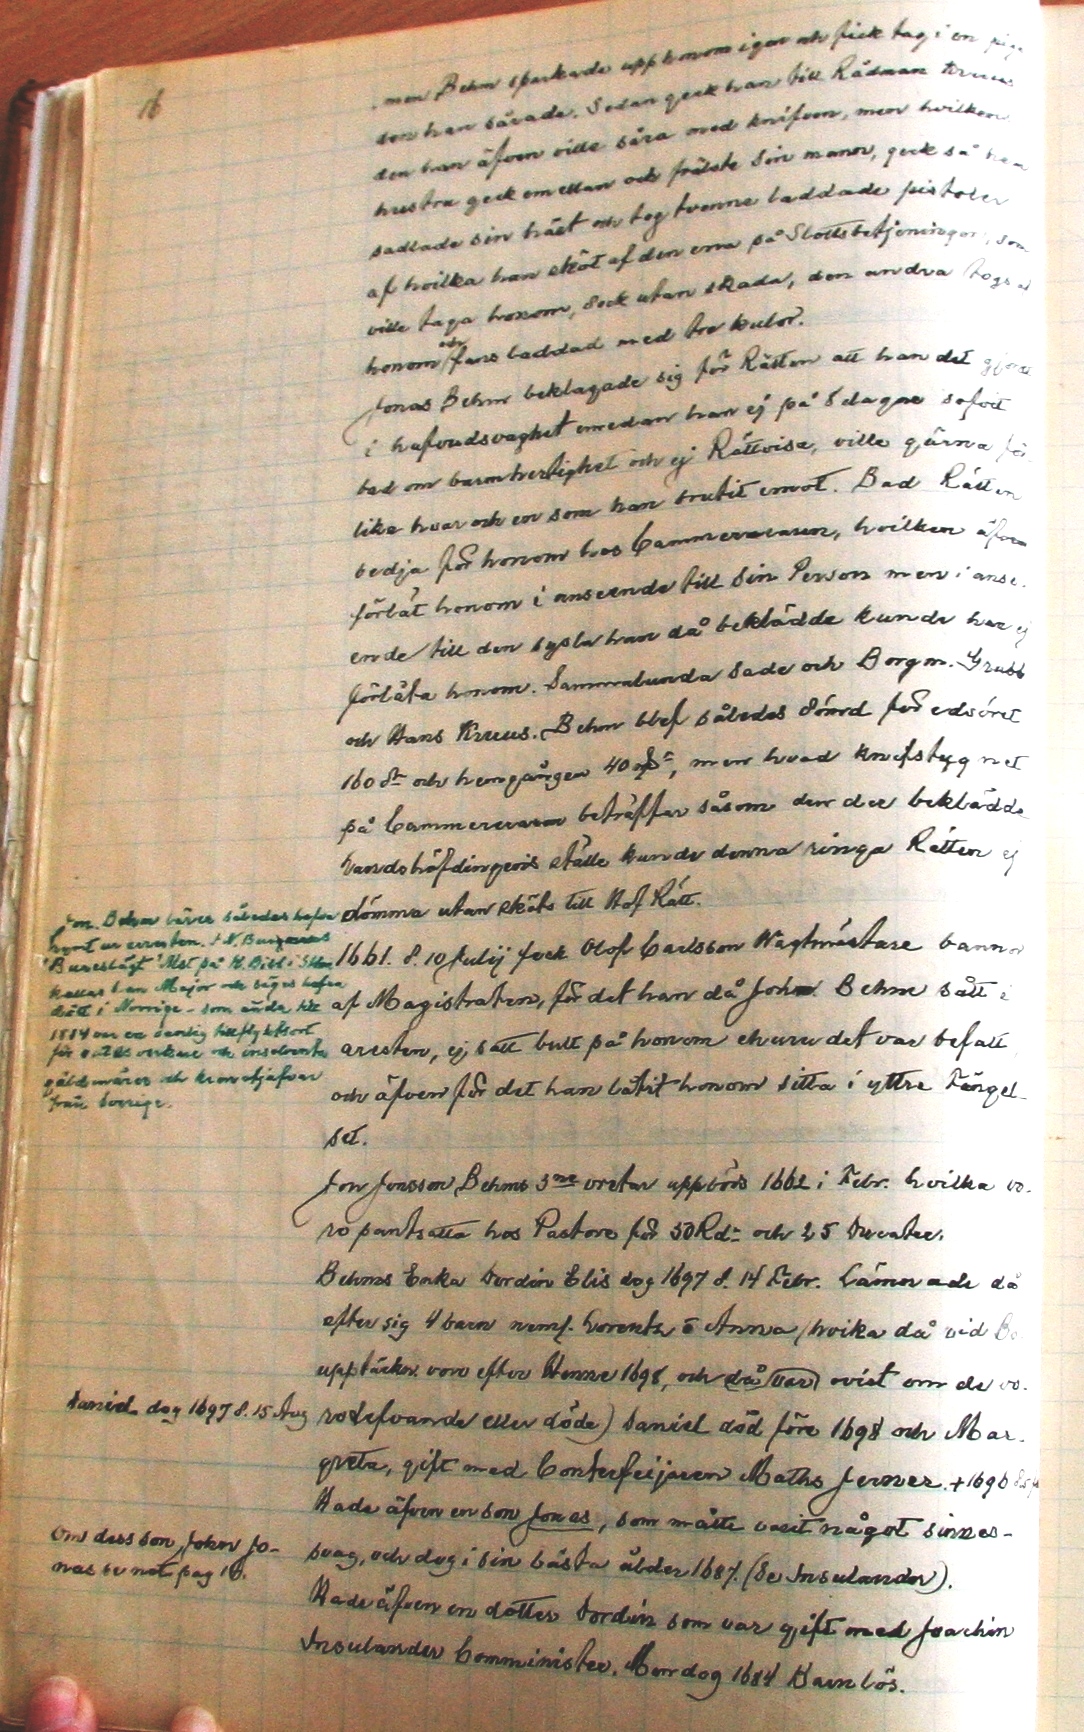 16
men Behm sparkade upp honom igen och fick tag i en piga
som han sårade. Sedan geck han till Rådman Kruus
den han äfven ville såra med knifven, men hvilkens
hustru geck emellan och frälste sin mann, geck så hem
sadlade sin häst och tog tvenne laddade pistoler
af hvilka han sköt af den ena på Slottsbetjeningen, som
ville taga honom, dock utan skada, den andra togs af
honom och fans laddad med tre kulor.
Jonas Behm beklagade sig för Rätten att han det gjort
i hufvudsvaghet emedan han ej på 8 dagar sofvit
bad om barmhertighet och ej Rättvisa, ville gärna för-
lika hvar och en som han brutit emot. Bad Rätten
bedja för honom hos Cammereraren, hvilken äfven
förlät honom i anseende till sin Person men i anse-
ende till den sysla han då beklädde kunde han ej
förlåta honom. Sammalunda sade och Borgm. Grubb
och Hans Kruus. Behm blef således dömd för edsöret
160 dr och hemgången 40 , men hvad knifstygnet
på Cammereraren beträffar såsom den der beklädde
Landshöfdingens ställe kunde denna ringa Rätten ej
dömma utan sköts till Hof Rätt.
Jon. Behm lärer således hafva
rymt ur arresten. I N.
"Bureslägt" Mst på K. Bibl i Sthm
kallas han Major och säges hafva
dött i Norrige - som ända till
1814 var en vanlig tillflyktsort
för och insolventa
gäldenärer och kronotjufvar
från Sverige.
1661. d. 10 Julij feck Olof Carlsson Wagtmästare bannor
af Magistraten, för det han då John Behm satt i
aresten, ej satt bult på honom ehuru det var befalt
och äfven för det han låtit honom sitta i yttre Fängel-
set.
Jon Jonsson Behms 3ne uretar uppbörs 1662 i Febr. hvilka vo-
ro pantsatta hos Pastore för 50 Rdr och 25 Ducater.
Behms Enka Dordin Elis dog 1697 d. 14 Febr. Lämnade då
efter sig 4 barn neml. Lorentz o Anna (hvika då vid Bo
upptäckn. voro efter Henne 1698, och då var ovist om de vo-
ro lefvande eller döde) Daniel död före 1698 och Mar-
Daniel dog 1697 d. 15 Aug
greta, gift med Conterfeijaren Maths Jerner. + 1696
Hade äfven en son Jonas, som måtte varit något sinnes-
svag, och dog i sin bästa ålder 1687. (Se Insulander).
Om dess son John Jo-
nas se not pag 16.
Hade äfven en dotter Dordin som var gift med Joachim
Insulander Comminister. Men dog 1684 Barnlös.